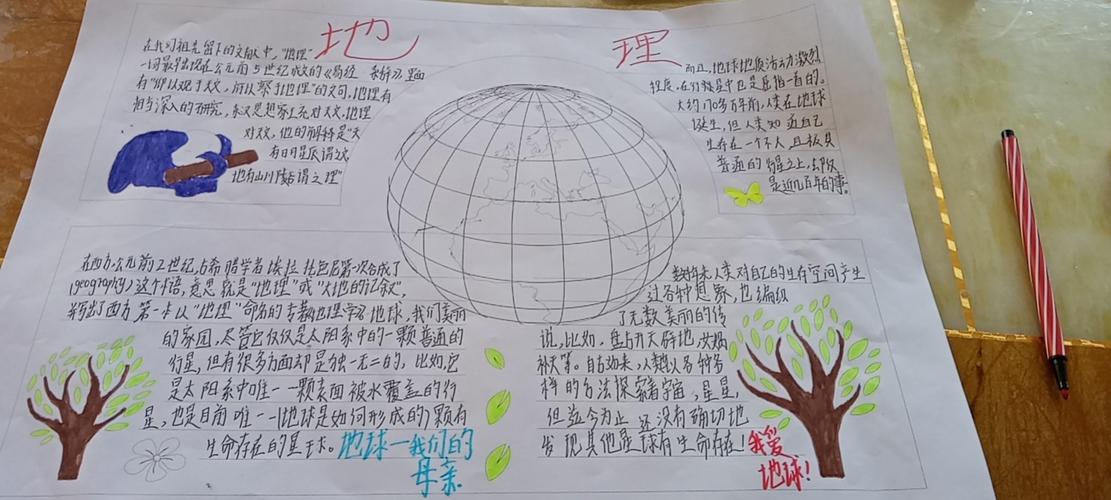 地理
在我们祖先留下的文献中,“地理”
一词最早出现在公元前5世纪成文的《易经 系辞》,里面
有“仰以观于天文,俯以察于地理”的文句,地理有
相当深入的研究,东汉思想家王充对天文,地理
对文,他的解释是“天
有日月星辰谓之文
地有山川陵谷谓之理”
而且,地球地质活动激烈
程度,在行星中也是屈指一首的。
大约170多万年前,人类在地球
诞生,但人类知道自己
生存在一个不人且极具
普通的行星之上,却仅
是近几百年的事。
在西方公元前2世纪,古希腊学者埃拉托色尼第一次合成了
(geography)这个术语,意思就是“地理”或“大地的记叙”,
并写出了西方第一本以“地理”命名的专著《地理学》地球,我们美丽
的家园,尽管它仅仅是太阳系中的一颗普通的
行星,但有很多方面却是独一无二的,比如,它
是太阳系中唯一一颗表面被水覆盖的行
星,也是目前唯一一(地球是如何形成的)颗有
生命存在的星球。地球—我们的
母亲
数千年来人类对自己的生存空间产生
过各种想象,也编织
了无数美丽的传
说,比如,盘古开天辟地,女娲
补天等。自古如来,人类以各种各
样的方法探索着宇宙,星星,
但迄今为止 还没有确切地
发现其他星球有生命存在!我爱
地球!